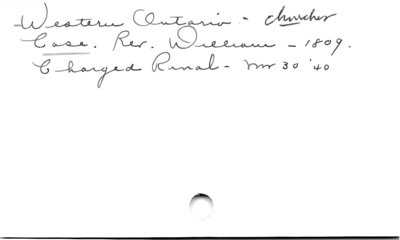 Western Ontario - churches
Case, Rev. William - 1809.
Charged Rural - Mr 30 '40